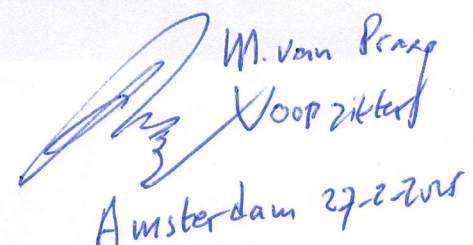 M. van Praag
Voorzitter
Amsterdam 27-2-2025